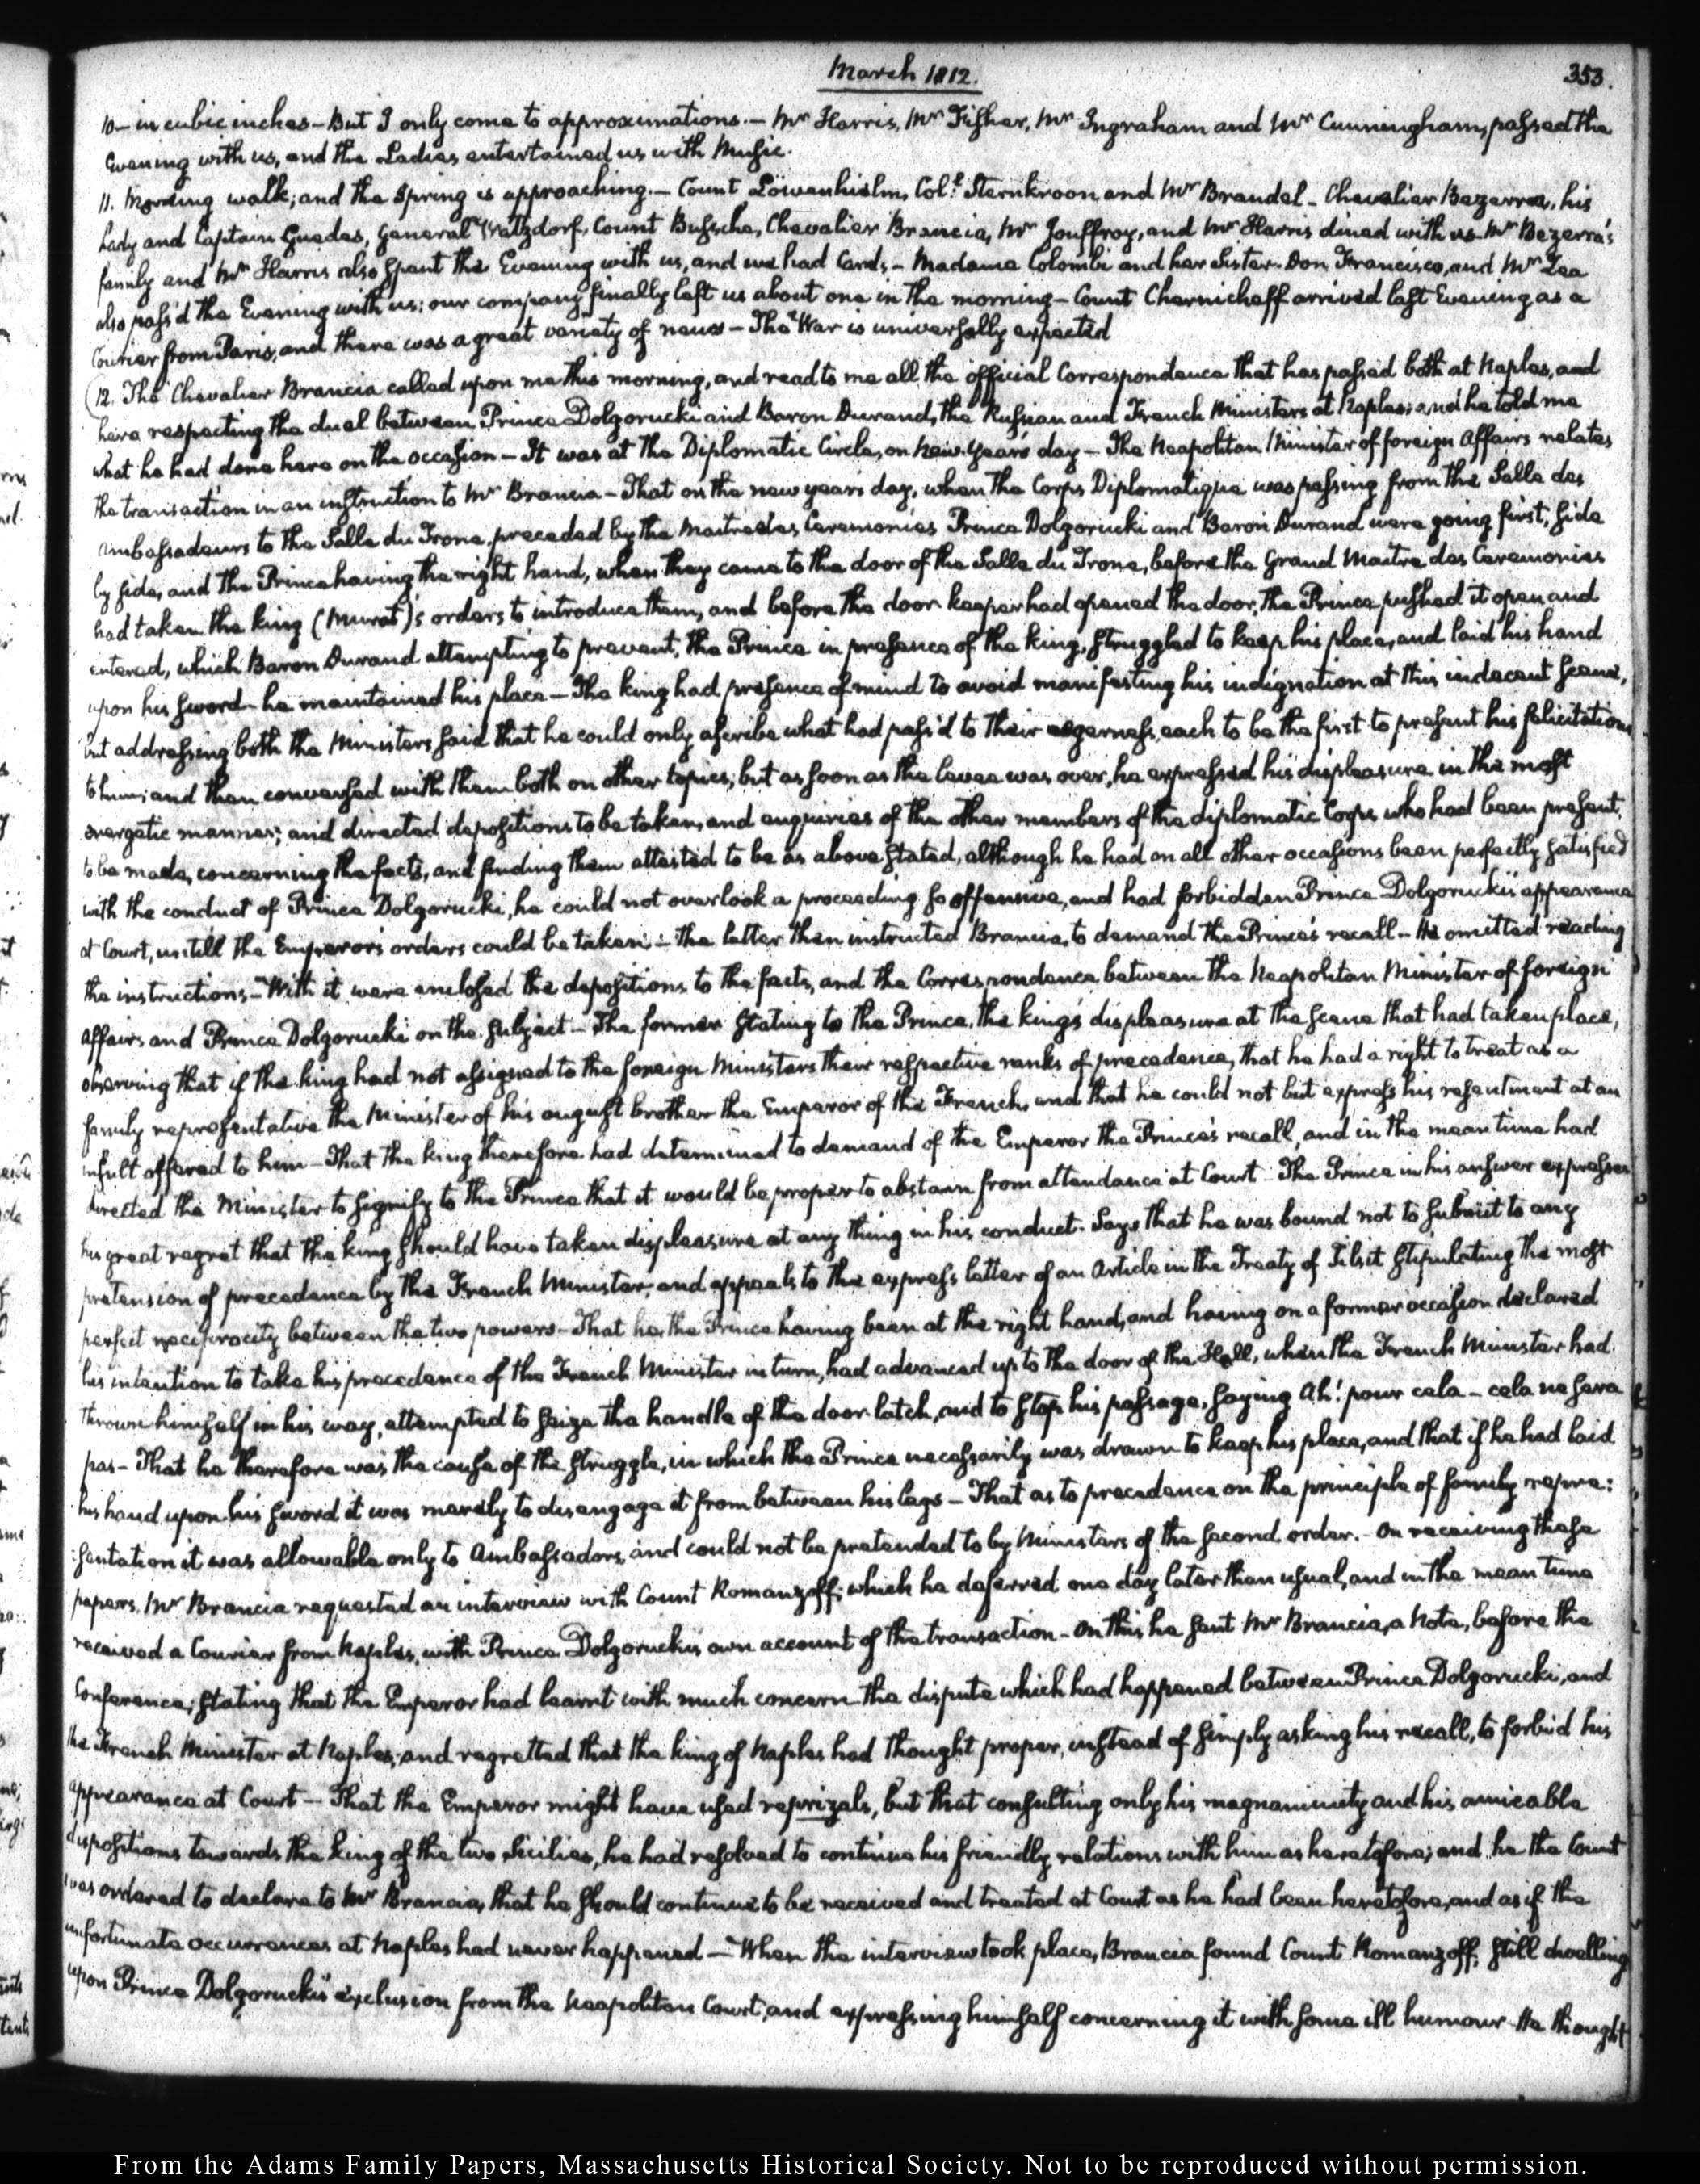 March 1812.
353.
10 — in cubic inches — But I only come to approximations. — Mr Harris, Mr Fisher, Mr Ingraham and Mr Cunningham, passed the
Evening with us, and the Ladies entertained us with Music.
11. Morning walk; and the Spring is approaching. — Count Löwenhielm, Coll. Sternkroon and Mr Brandel — Chevalier Bezerra, his
Lady and Captain Guedes, General Watzdorf, Count Bussche, Chevalier Brancia, Mr Jouffroy, and Mr Harris dined with us — Mr Bezerra's
family and Mr Harris also spent the Evening with us, and we had Cards — Madame Colombi and her Sister. Don Francisco, and Mr Zea
also pass'd the Evening with us; our company finally left us about one in the morning — Count Chernicheff arrived last Evening as a
Courier from Paris, and there was a great variety of news — The War is universally expected
12. The Chevalier Brancia called upon me this morning, and read to me all the official Correspondence that has passed both at Naples, and
here respecting the duel between Prince Dolgorucki and Baron Durand, the Russian and French Ministers at Naples; and he told me
what he had done here on the occasion — It was at the Diplomatic Circle, on New-Year's day — The Neapolitan Minister of foreign Affairs relates
the transaction in an instruction to Mr Brancia — That on the new years day, when the Corps Diplomatique was passing from the Salle des
Ambassadeurs to the Salle du Trone, preceded by the Maitre des Ceremonies Prince Dolgorucki and Baron Durand were going first, side
by side, and the Prince having the right hand, when they came to the door of the Salle du Trone, before the Grand Maitre des Ceremonies
had taken the king (Murat)'s orders to introduce them, and before the door keeper had opened the door, the Prince pushed it open and
entered, which Baron Durand attempting to prevent, the Prince in presence of the king, struggled to keep his place, and laid his hand
upon his sword — he maintained his place — The king had presence of mind to avoid manifesting his indignation at this indecent scene,
but addressing both the Ministers said that he could only ascribe what had pass'd to their eagerness, each to be the first to present his felicitations
to him; and then conversed with them both on other topics; but as soon as the levee was over, he expressed his displeasure in the most
energetic manner; and directed depositions to be taken, and enquiries of the other members of the diplomatic Corps who had been present,
to be made, concerning the facts, and finding them attested to be as above stated, although he had on all other occasions been perfectly satisfied
with the conduct of Prince Dolgorucki, he could not overlook a proceeding so offensive, and had forbidden Prince Dolgorucki's appearance
at Court, untill the Emperor's orders could be taken — The letter then instructed Brancia, to demand the Prince's recall — He omitted reading
the instructions — With it were enclosed the depositions to the facts, and the Correspondence between the Neapolitan Minister of foreign
Affairs and Prince Dolgorucki on the subject — The former stating to the Prince, the king's displeasure at the scene that had taken place,
observing that if the king had not assigned to the foreign Ministers their respective ranks of precedence, that he had a right to treat as a
family representative the Minister of his august brother the Emperor of the French, and that he could not but express his resentment at an
insult offered to him — That the king therefore had determined to demand of the Emperor the Prince's recall, and in the mean time had
directed the Minister to signify to the Prince that it would be proper to abstain from attendance at Court — The Prince in his answer expresses
his great regret that the king should have taken displeasure at any thing in his conduct. Says that he was bound not to submit to any
pretension of precedence by the French Minister, and appeals to the express letter of an Article in the Treaty of Tilsit stipulating the most
perfect reciprocity between the two powers — That he, the Prince having been at the right hand, and having on a former occasion declared
his intention to take his precedence of the French Minister in turn, had advanced up to the door of the Hall, when the French Minister had
thrown himself in his way, attempted to seize the handle of the door-latch, and to stop his passage, saying Ah! pour cela — cela ne sera
pas — That he therefore was the cause of the struggle, in which the Prince necessarily was drawn to keep his place, and that if he had laid
his hand upon his sword it was merely to disengage it from between his legs — That as to precedence on the principle of family repre:
:sentation it was allowable only to Ambassadors, and could not be pretended to by Ministers of the second order. — On receiving these
papers, Mr Brancia requested an interview with Count Romanzoff; which he deferred one day later than usual, and in the mean time
received a Courier from Naples, with Prince Dolgorucki's own account of the transaction — On this he sent Mr Brancia, a Note, before the
Conference; stating that the Emperor had learnt with much concern the dispute which had happened between Prince Dolgorucki, and
the French Minister at Naples, and regretted that the king of Naples had thought proper, instead of simply asking his recall, to forbid his
appearance at Court — That the Emperor might have used reprizals, but that consulting only his magnanimity and his amicable
dispositions towards the king of the two Sicilies, he had resolved to continue his friendly relations with him as heretofore; and he the Count
was ordered to declare to Mr Brancia, that he should continue to be received and treated at Court as he had been heretofore, and as if the
unfortunate occurrences at Naples had never happened — When the interview took place, Brancia found Count Romanzoff, still dwelling
upon Prince Dolgorucki's exclusion from the Neapolitan Court, and expressing himself concerning it with some ill humour — He thought
From the Adams Family Papers, Massachusetts Historical Society. Not to be reproduced without permission.